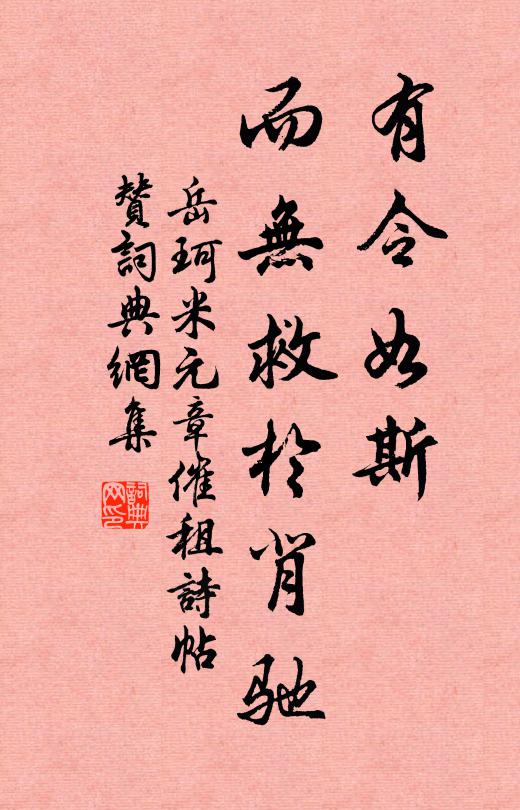 有令如斯
而無救於背馳
岳珂米元章催租詩帖
贊詞典網集
詞典网印